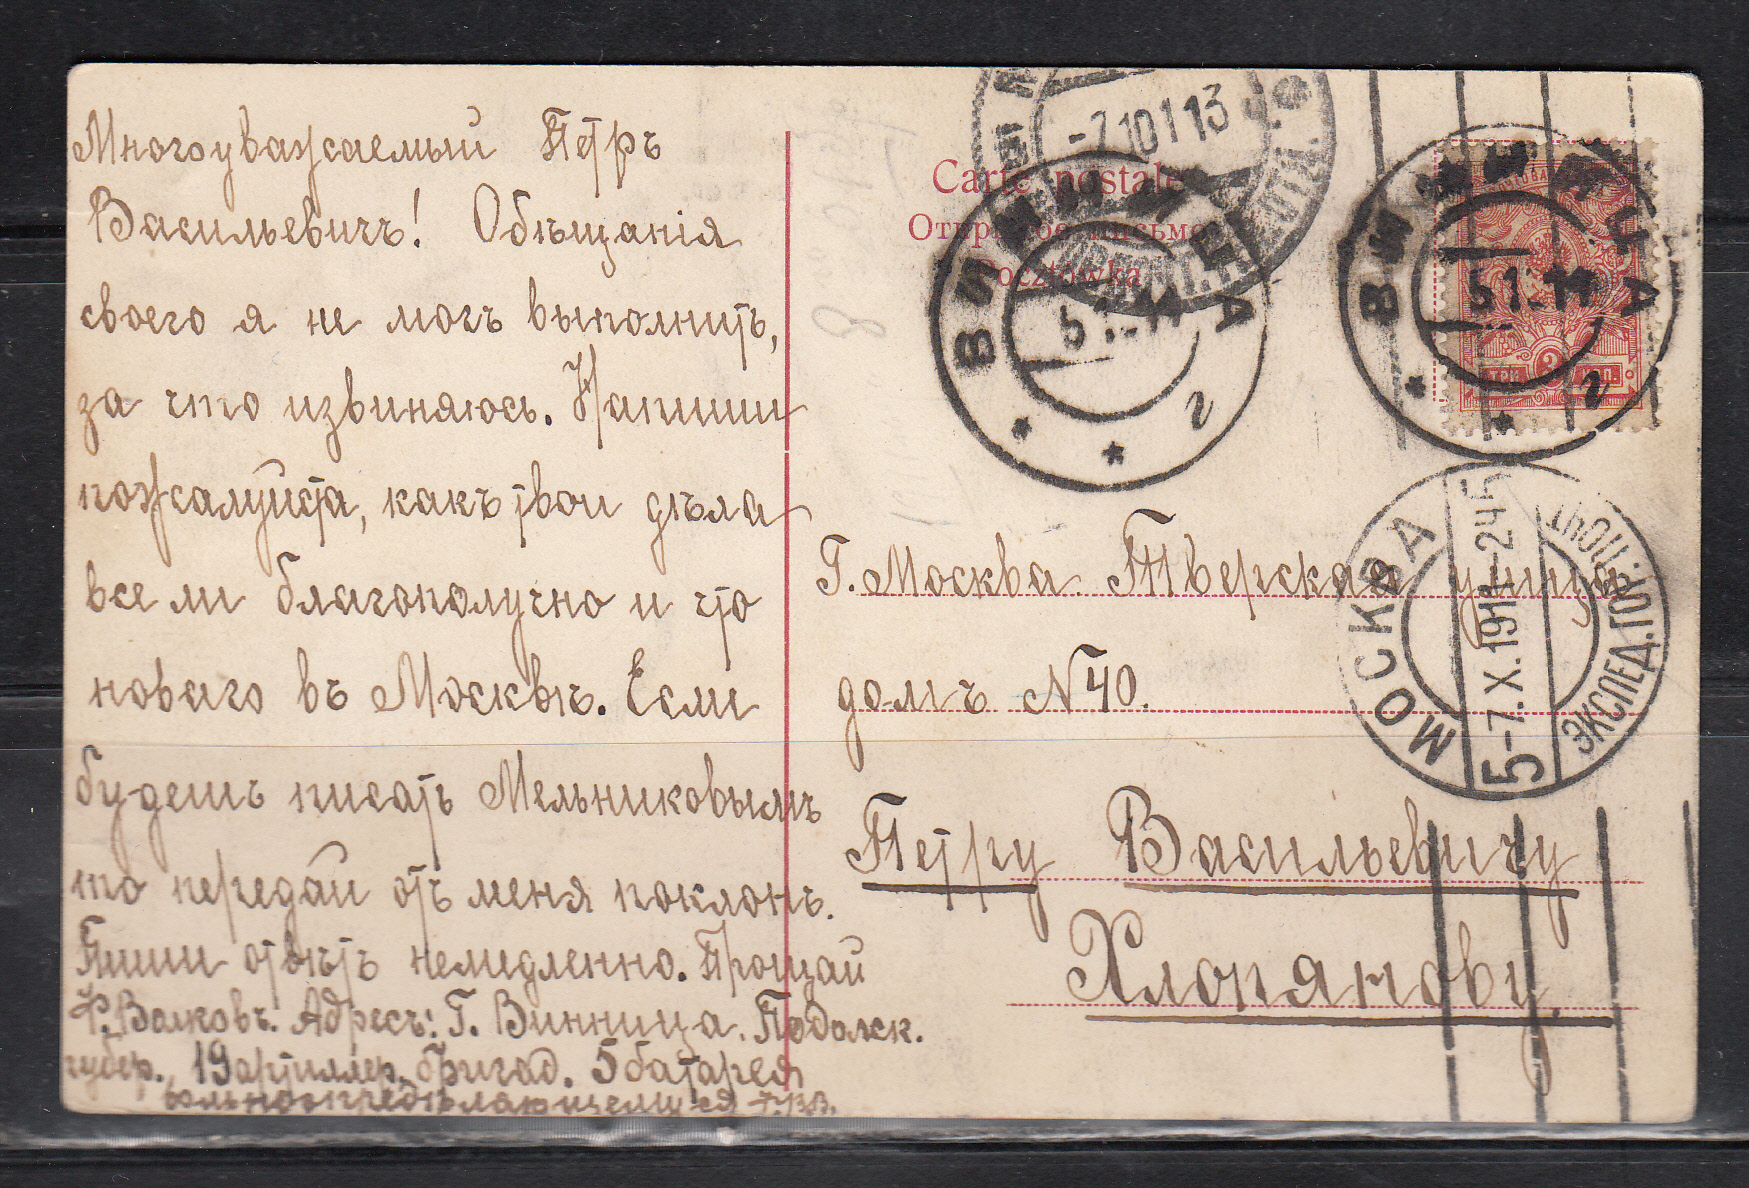 Многоуважаемый Пётръ
Васильевичъ! Обѣщанія
своего я не могъ выполнить,
за что извиняюсь. Напиши
пожалуйста, какъ твои дѣла
все ли благополучно и что
новаго въ Москвѣ. Если
будешь писать Мельниковымъ
то передай отъ меня поклонъ.
Пиши отвѣтъ немедленно. Прощай
Ф. Волковъ. Адресъ: Г. Винница. Подольск.
губер., 19 артиллер. бригад. 5 батарея
вольноопредѣляющемуся Ф. В.В.
Carte postale
Открытое письмо
Pocztówka
-7 10 1 13
ВИННИЦА
5 1 - 11
г
ВИННИЦА
5 1 - 11
г
ТРИ 3 КОП.
МОСКВА
5-7.X.1911-24
ЭКСПЕД. ГОР. ПОЧТ
Г. Москва Тверская улица
домъ № 40.
Петру Васильевичу
Хлопянову